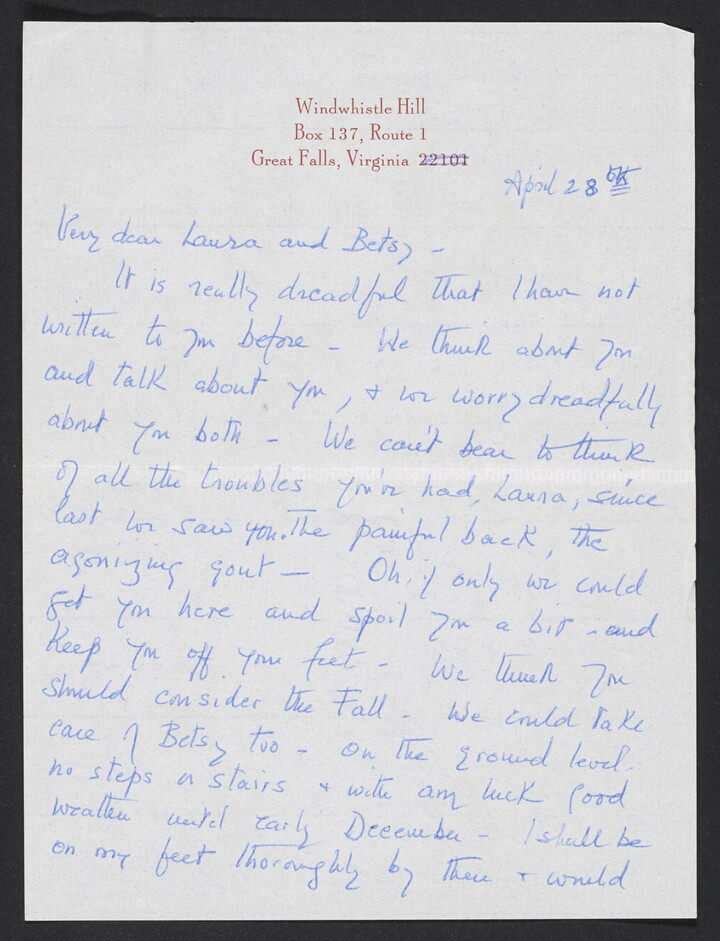 Windwhistle Hill
Box 137, Route 1
Great Falls, Virginia 22101
April 28th
Very dear Laura and Betsy -
It is really dreadful that I have not
written to you before - We think about you
and talk about you, + we worry dreadfully
about you both - We can't bear to think
of all the troubles you've had, Laura, since
last we saw you. The painful back, the
agonizing gout - Oh, if only we could
get you here and spoil you a bit - and
keep you off your feet - We think you
should consider the Fall - We could take
care of Betsy too - on the ground level
no steps or stairs + with any luck good
weather until early December - I shall be
on my feet thoroughly by then + would